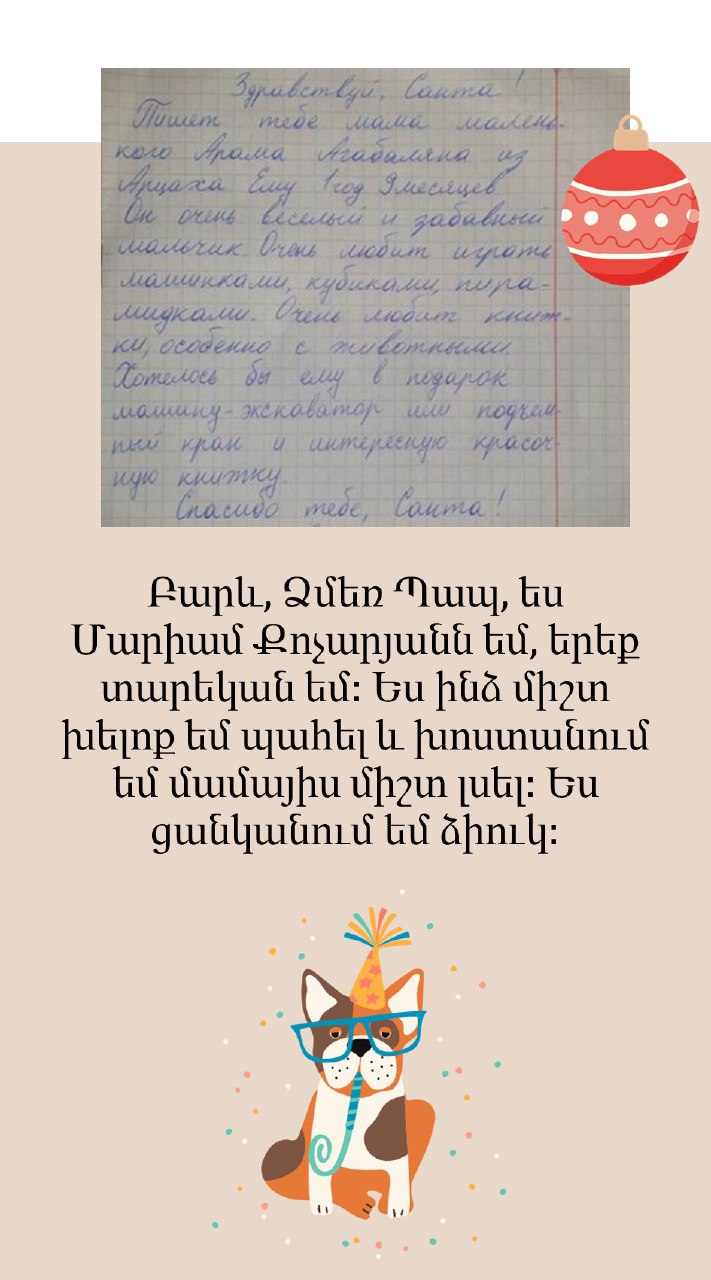 Здравствуй, Санта!
Пишет тебе мама малень-
кого Арама Агабаляна из
Арцаха Ему 1 год 9 месяцев
Он очень веселый и забавный
мальчик. Очень любит играть
машинками, кубиками, пира-
мидками. Очень любит книж-
ки, особенно с животными.
Хотелось бы ему в подарок
машину-экскаватор или подъем-
ный кран и интересную красоч-
ную книжку.
Спасибо тебе, Санта!
Բարև, Ձմեռ Պապ, ես
Մարիամ Քոչարյանն եմ, երեք
տարեկան եմ: Ես ինձ միշտ
խելոք եմ պահել և խոստանում
եմ մամայիս միշտ լսել: Ես
ցանկանում եմ ձիուկ: